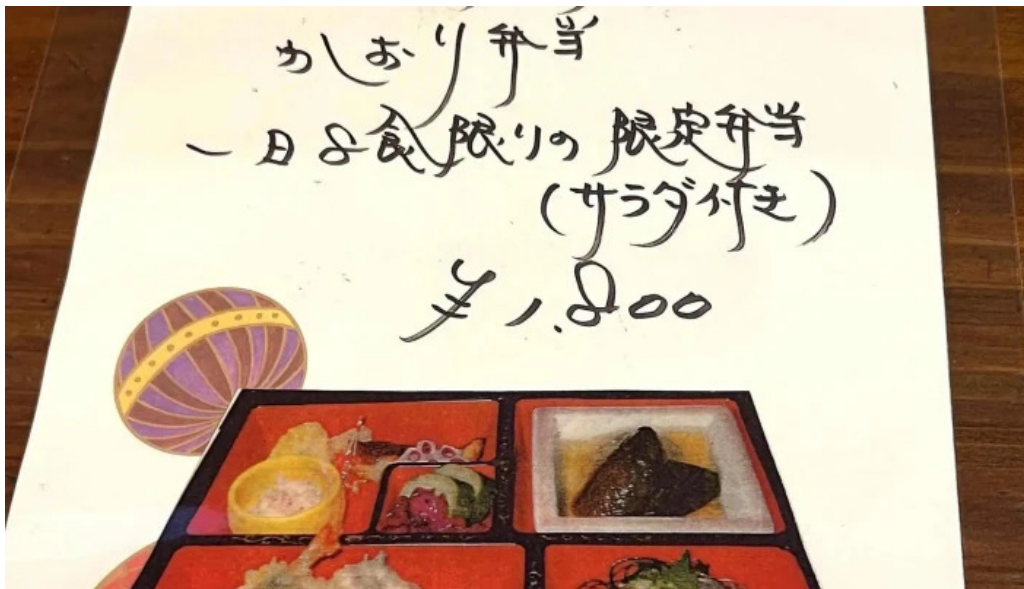 かしおり弁当
一日8食限りの限定弁当
(サラダ付き)
¥1.800